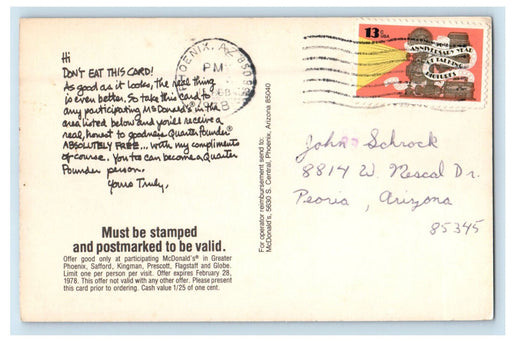 Hi
DON'T EAT THIS CARD!
As good as it looks, the real thing
is even better. So take this card to
any participating McDonald's® in the
area listed below and you'll receive a
real, honest to goodness Quarter Pounder®
ABSOLUTELY FREE... with my compliments
of course. You too can become a Quarter
Pounder person.
Yours Truly,
Must be stamped
and postmarked to be valid.
Offer good only at participating McDonald's® in Greater
Phoenix, Safford, Kingman, Prescott, Flagstaff and Globe.
Limit one per person per visit. Offer expires February 28,
1978. This offer not valid with any other offer. Please present
this card prior to ordering. Cash value 1/25 of one cent.
For operator reimbursement send to:
McDonald's, 5630 S. Central, Phoenix, Arizona 85040
PHOENIX, AZ
PM
13c
USA
50th
ANNIVERSARY YEAR
OF TALKING
PICTURES
John Schrock
8814 W. Nescal Dr.
Peoria, Arizona
85345